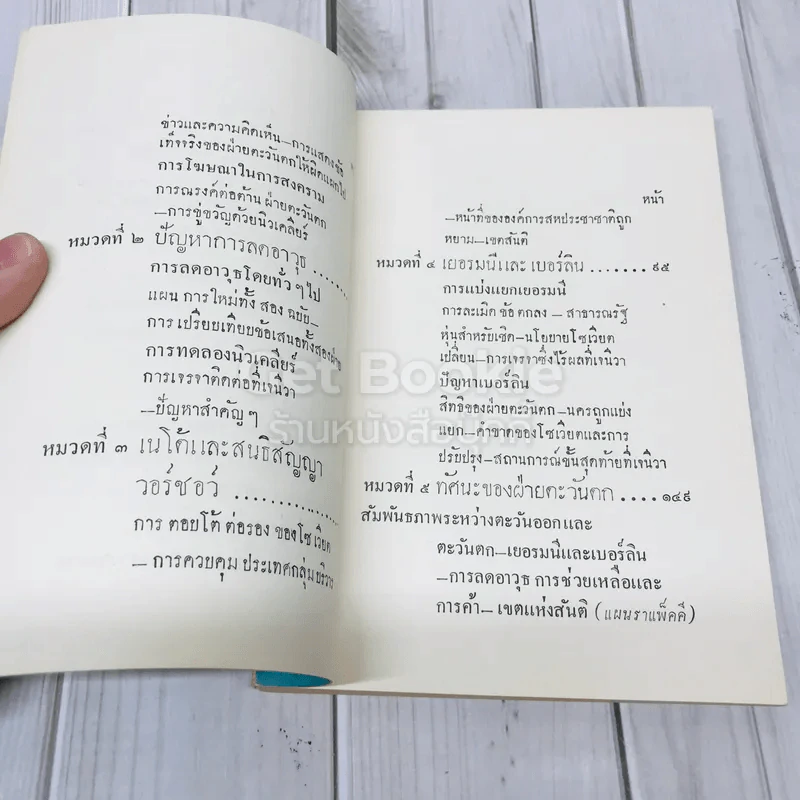 ข่าวและความคิดเห็น–การแสดงข้อ
เท็จจริงของฝ่ายตะวันตกให้ผิดแผกไป
การโฆษณาในการสงคราม
การณรงค์ต่อต้าน ฝ่ายตะวันตก
–การขู่ขวัญด้วยนิวเคลียร์
หมวดที่ ๒ ปัญหาการลดอาวุธ ........
การลดอาวุธโดยทั่ว ๆ ไป
แผน การใหม่ทั้ง สอง ฉบับ–
การ เปรียบเทียบข้อเสนอทั้งสองฝ่าย
การทดลองนิวเคลียร์
การเจรจาติดต่อที่เจนีวา
–ปัญหาสำคัญ ๆ
หมวดที่ ๓ เนโต้และสนธิสัญญา
วอร์ซอว์ ............
การ ตอบโต้ ต่อรอง ของโซเวียต
–การควบคุม ประเทศกลุ่มบริวาร
หน้า
–หน้าที่ขององค์การสหประชาชาติถูก
หยาม–เขตสันติ
หมวดที่ ๔ เยอรมนีและ เบอร์ลิน .......๙๕
การแบ่งแยกเยอรมนี
การละเมิด ข้อ ตกลง – สาธารณรัฐ
หุ่นสำหรับเชิด–นโยบายโซเวียต
เปลี่ยน–การเจรจาซึ่งไร้ผลที่เจนีวา
ปัญหาเบอร์ลิน
สิทธิของฝ่ายตะวันตก–นครถูกแบ่ง
แยก–คำขาดของโซเวียตและการ
ปรับปรุง–สถานการณ์ขั้นสุดท้ายที่เจนีวา
หมวดที่ ๕ ทัศนะของฝ่ายตะวันตก ....๑๔๙
สัมพันธภาพระหว่างตะวันออกและ
ตะวันตก–เยอรมนีและเบอร์ลิน
–การลดอาวุธ การช่วยเหลือและ
การค้า–เขตแห่งสันติ (แผนราแพ็คคี)
Get Bookie
ร้านหนังสือมือสอง